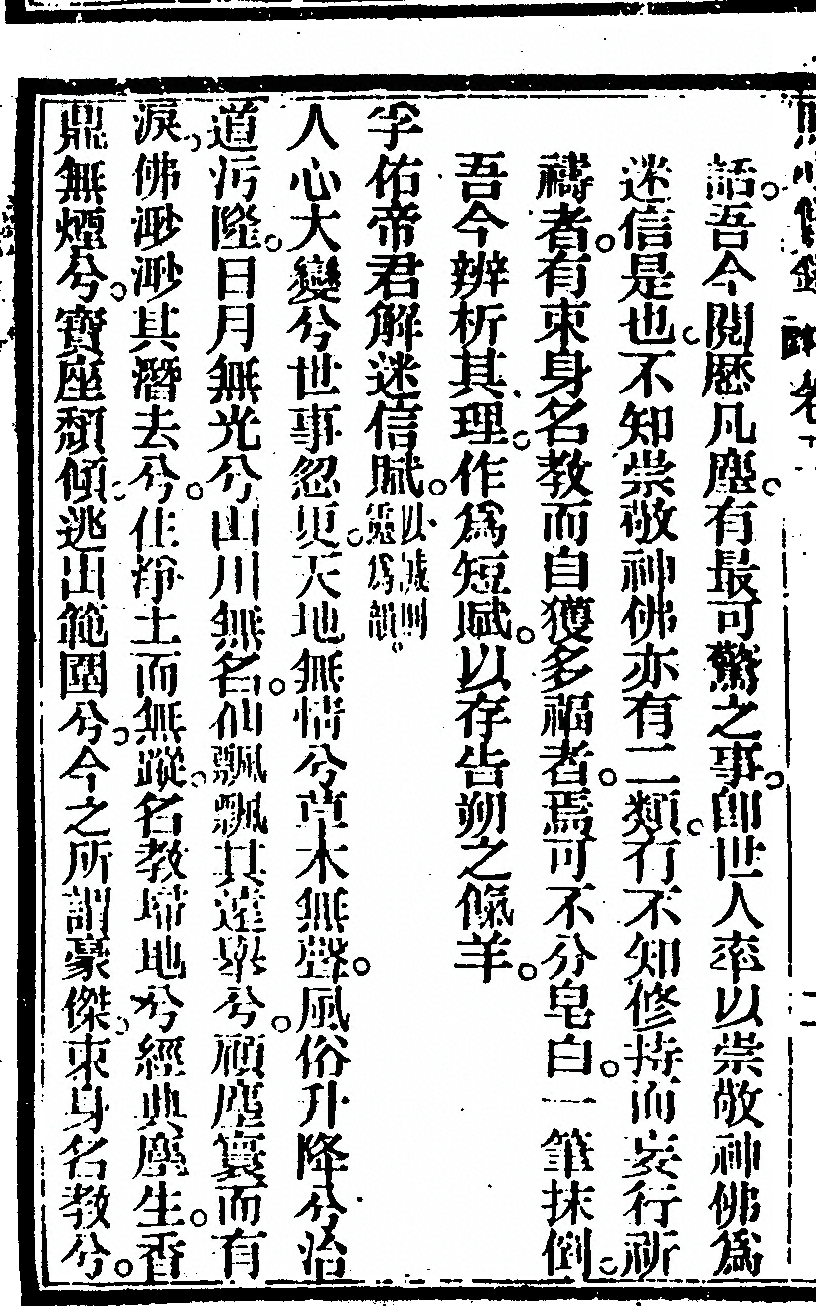 話。吾今閱歷凡塵。有最可驚之事。卽世人率以崇敬神佛爲
迷信是也。不知崇敬神佛亦有二類。有不知修持而妄行祈
禱者。有束身名教而自獲多福者。焉可不分皂白。一筆抹倒。
吾今辨析其理。作爲短賦。以存告朔之餼羊。
孚佑帝君解迷信賦。以誠則靈爲韻。
人心大變兮世事忽更。天地無情兮草木無聲。風俗升降兮治
道污隆。日月無光兮山川無名。仙飄飄其遠舉兮。顧塵寰而有
淚。佛渺渺其潛去兮。住淨土而無蹤。名教掃地兮經典塵生。香
鼎無煙兮。寶座頹傾。逃出範圍兮。今之所謂豪傑。束身名教兮。